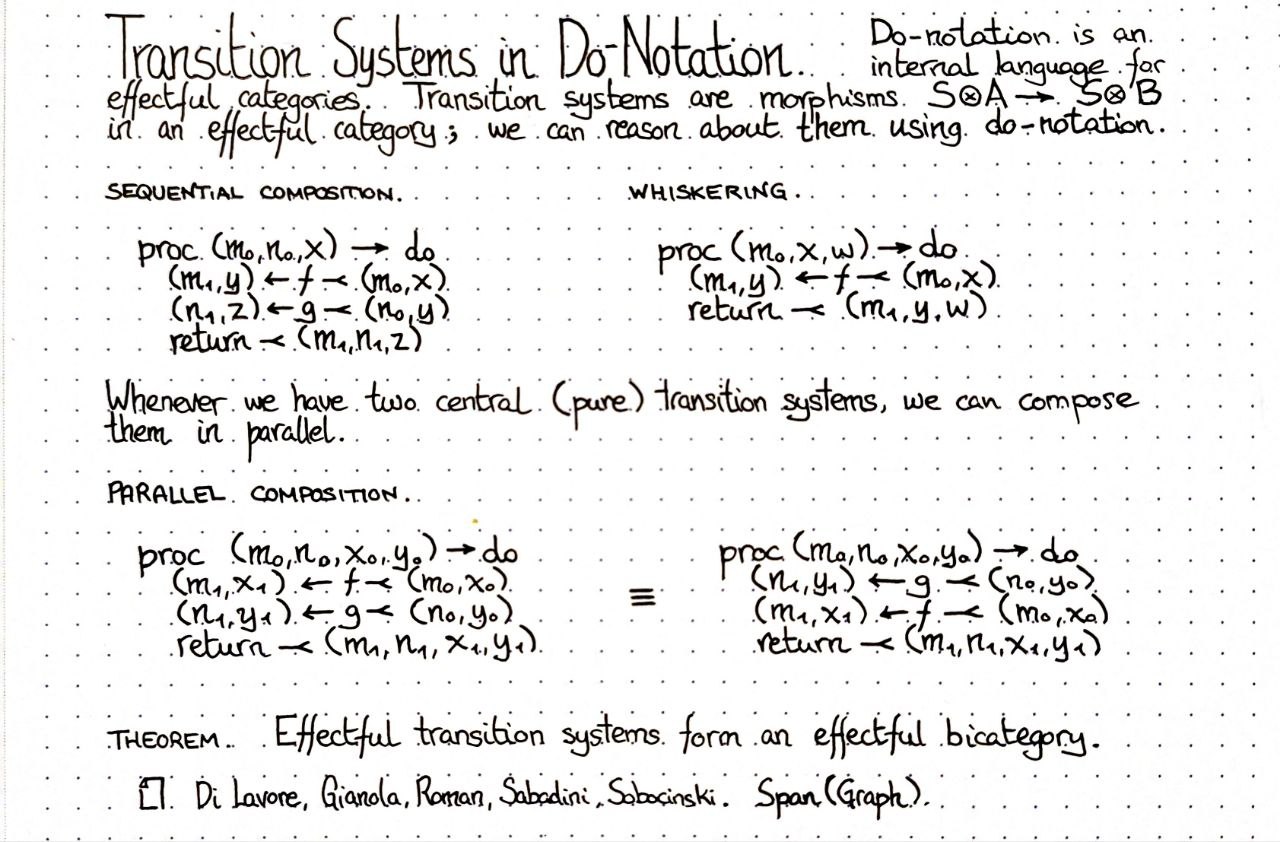 Transition Systems in Do-Notation. Do-notation is an
internal language for
effectful categories. Transition systems are morphisms S⊗A → S⊗B
in an effectful category; we can reason about them using do-notation.
SEQUENTIAL COMPOSITION.
proc (m₀,n₀,x) → do
(m₁,y) ← f ⤙ (m₀,x)
(n₁,z) ← g ⤙ (n₀,y)
return ⤙ (m₁,n₁,z)
WHISKERING.
proc (m₀,x,w) → do
(m₁,y) ← f ⤙ (m₀,x)
return ⤙ (m₁,y,w)
Whenever we have two central (pure) transition systems, we can compose
them in parallel.
PARALLEL COMPOSITION.
proc (m₀,n₀,x₀,y₀) → do
(m₁,x₁) ← f ⤙ (m₀,x₀)
(n₁,y₁) ← g ⤙ (n₀,y₀)
return ⤙ (m₁,n₁,x₁,y₁)
≡
proc (m₀,n₀,x₀,y₀) → do
(n₁,y₁) ← g ⤙ (n₀,y₀)
(m₁,x₁) ← f ⤙ (m₀,x₀)
return ⤙ (m₁,n₁,x₁,y₁)
THEOREM. Effectful transition systems form an effectful bicategory.
Di Lavore, Gianola, Roman, Sabadini, Sobocinski. Span(Graph).